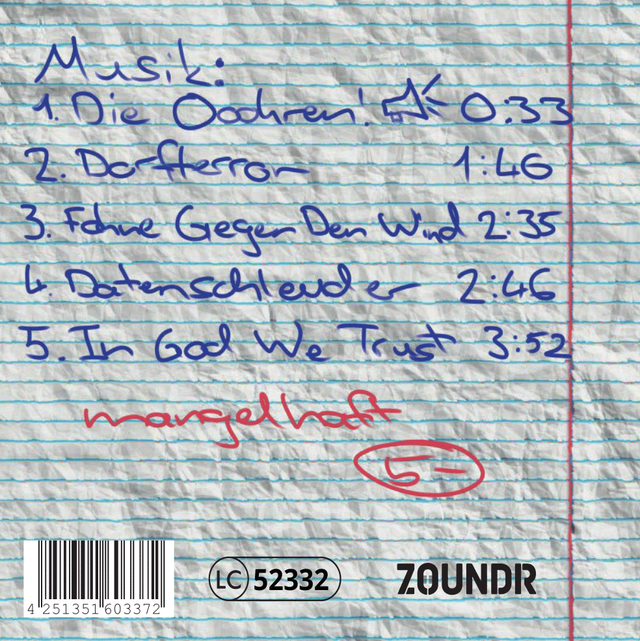 Musik:
1. Die Oochren! 0:33
2. Dorfterror 1:46
3. Fahne Gegen Den Wind 2:35
4. Datenschleuder 2:46
5. In God We Trust 3:52
mangelhaft
5-
4 251351 603372
LC 52332
ZOUNDR